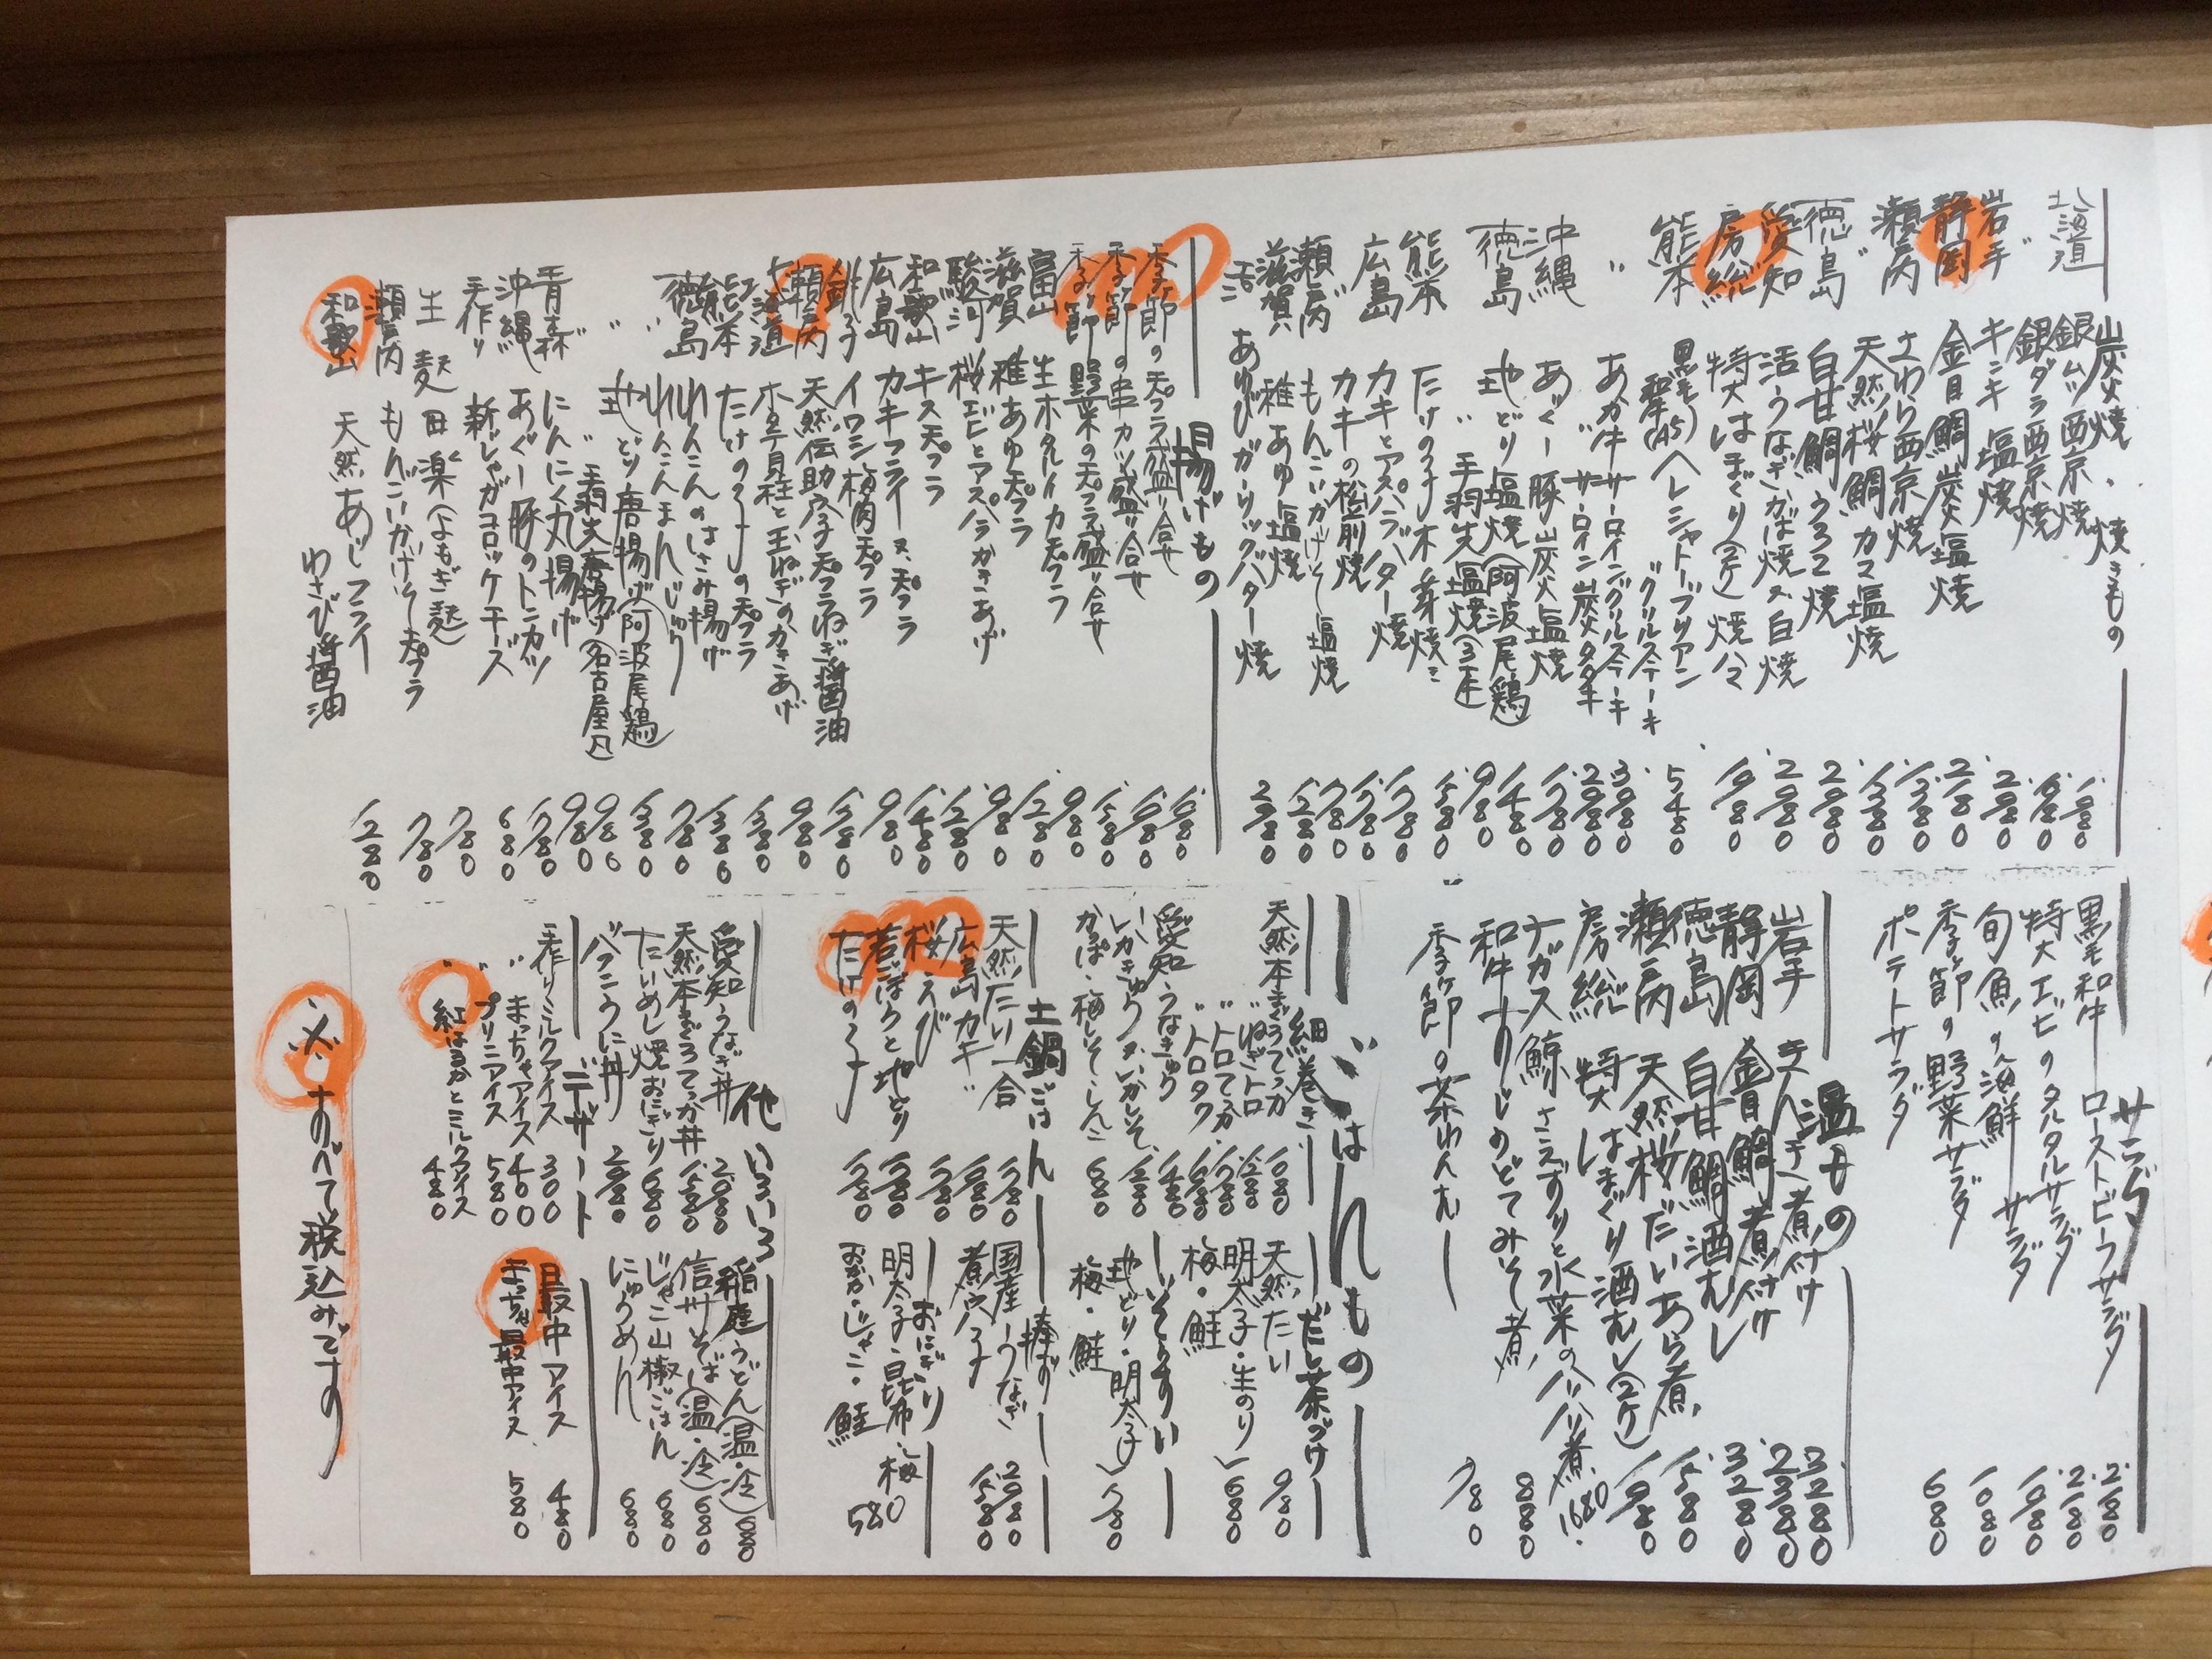 炭火焼・焼きもの
北海道 銀ムツ西京焼 1.080
〃 銀ダラ西京焼 1.680
岩手 キンキ塩焼 2.980
静岡 金目鯛炭塩焼 2.180
〃 さわら西京焼 1.380
瀬戸内 天然桜鯛カマ塩焼 1.380
徳島 白甘鯛うろこ焼 2.980
愛知 活うなぎかば焼又白焼 2.980
房総 特大はまぐり(2ケ)焼 1.980
熊本 黒毛和牛(A5)ヘレシャトーブリアン
〃グリルステーキ 5.480
〃 あか牛サーロイングリルステーキ 3.980
〃 サーロイン炭火タタキ 2.980
沖縄 あぐー豚炭火塩焼 1.780
徳島 地どり塩焼(阿波尾鶏) 1.480
〃 手羽先塩焼(3本) 980
熊本 たけの子木の芽焼 1.580
広島 カキとアスパラバター焼 1.780
〃 カキの松前焼 1.780
瀬戸内 もんごいかげそ塩焼 780
滋賀 稚あゆ塩焼 1.280
活あわびガーリックバター焼 2.980
揚げもの
季節の天プラ盛り合せ 1.680
季節の串カツ盛り合せ 1.680
季節野菜の天プラ盛り合せ 1.580
富山 生ホタルイカ天プラ 980
滋賀 稚あゆ天プラ 1.280
駿河 桜エビとアスパラかきあげ 980
和歌山 キス天プラ 1.280
広島 カキフライ又天プラ 1.480
銚子 イワシ梅肉天プラ 980
瀬戸内 天然伝助穴子天プラねぎ醤油 1.380
北海道 ホタテ貝柱と玉ねぎのかきあげ 980
熊本 たけの子の天プラ 1.380
〃 れんこんのはさみ揚げ 1.380
〃 れんこんまんじゅう 780
徳島 地どり唐揚げ(阿波尾鶏) 1.380
〃 手羽先唐揚げ(名古屋風) 980
青森 にんにく丸揚げ 980
沖縄 あぐー豚のトンカツ 1.780
手作り 新じゃがコロッケチーズ 680
生麩田楽(よもぎ麩) 780
瀬戸内 もんごいかげそ天プラ 780
和歌山 天然あじフライ
わさび醤油 1.280
サラダ
黒毛和牛ローストビーフサラダ 2.180
特大エビのタルタルサラダ 2.280
旬魚の海鮮サラダ 1.980
季節の野菜サラダ 1.080
ポテトサラダ 680
温もの
岩手 きんき煮付け 3.280
静岡 金目鯛煮付け 2.380
徳島 白甘鯛酒むし 3.280
瀬戸内 天然桜だいあら煮 1.580
房総 特大はまぐり酒むし(2ケ) 1.980
ナガス鯨さえずりと水菜のハリハリ煮 1.680
和牛すじのどてみそ煮 880
季節の茶わんむし 780
ごはんもの
細巻き
天然本まぐろてっか 1.080
〃ねぎトロ 1.280
〃トロてっか 1.780
〃トロタク 1.680
愛知 うなきゅう 1.480
いかきゅう又いかしそ 1.280
かっぱ・梅しそ・しんこ 680
だし茶づけ
天然たい 980
明太子・生のり
梅・鮭 680
ぞうすい
地どり・明太子
梅・鮭 780
土鍋ごはん
天然たい一合 1.780
広島カキ〃 1.980
桜えび 1.780
若ごぼうと地どり 1.780
たけの子 1.780
棒ずし
国産うなぎ 2.980
煮穴子 1.580
おにぎり
明太子・昆布・梅
おかか・じゃこ・鮭 580
他いろいろ
愛知うなぎ丼 2.980
天然本まぐろてっか丼 1.580
たいめし焼おにぎり 680
バフンうに丼 2.980
稲庭うどん(温・冷) 680
信州そば(温・冷) 680
じゃこ山椒ごはん 680
にゅうめん 680
デザート
手作りミルクアイス 300
〃 まっちゃアイス 400
〃 プリンアイス 580
〃 紅はるかとミルクアイス 480
最中アイス 480
まっちゃ最中アイス 580
※すべて税込みです